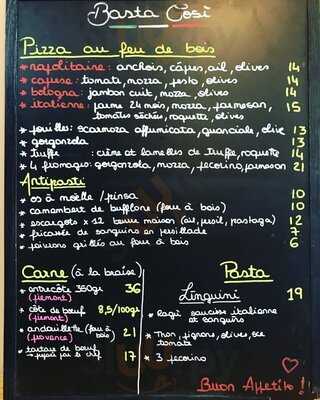 Basta Così
Pizza au feu de bois
* napolitaine : anchois, câpres, ail, olives 14
* capuse : tomati, mozza, pesto, olives 14
* bologna : jambon cuit, mozza, olives 14
* italienne : jaune 24 mois, mozza, parmesan, 15
tomates séchées, roquette, olives
* fouilles : scarmoza affumicata, guanciale, olive 13
* gorgonzola 13
* truffe : crème et lamelles de truffe, roquette 14
* 4 fromages : gorgonzola, mozza, pecorino, parmesan 21
Antipasti
* os à moëlle / pinsa 10
* camembert de bufflone (four à bois) 10
* escargots x 12 beurre maison (ail, persil, pastaga) 12
* fricassée de sanguins en persillade 7
* poivrons grillés au four à bois 6
Carne (à la braise)
* entrecôte 350gr 36
(piemont)
* côte de boeuf 8,5/100gr
(piemont)
* andouillette (four à bois) 21
(provence)
* tartare de boeuf 17
préparé par le chef
Pasta
Linguini 19
* Ragù saucisse italienne
et sanguins
* Thon, pignons, olives,
tomate
* 3 pecorino
Buon Appetito !